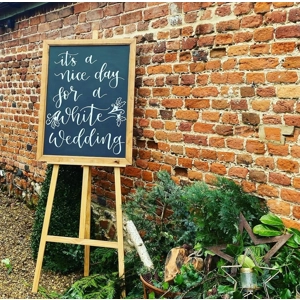 it's a
nice day
for a
White
Wedding